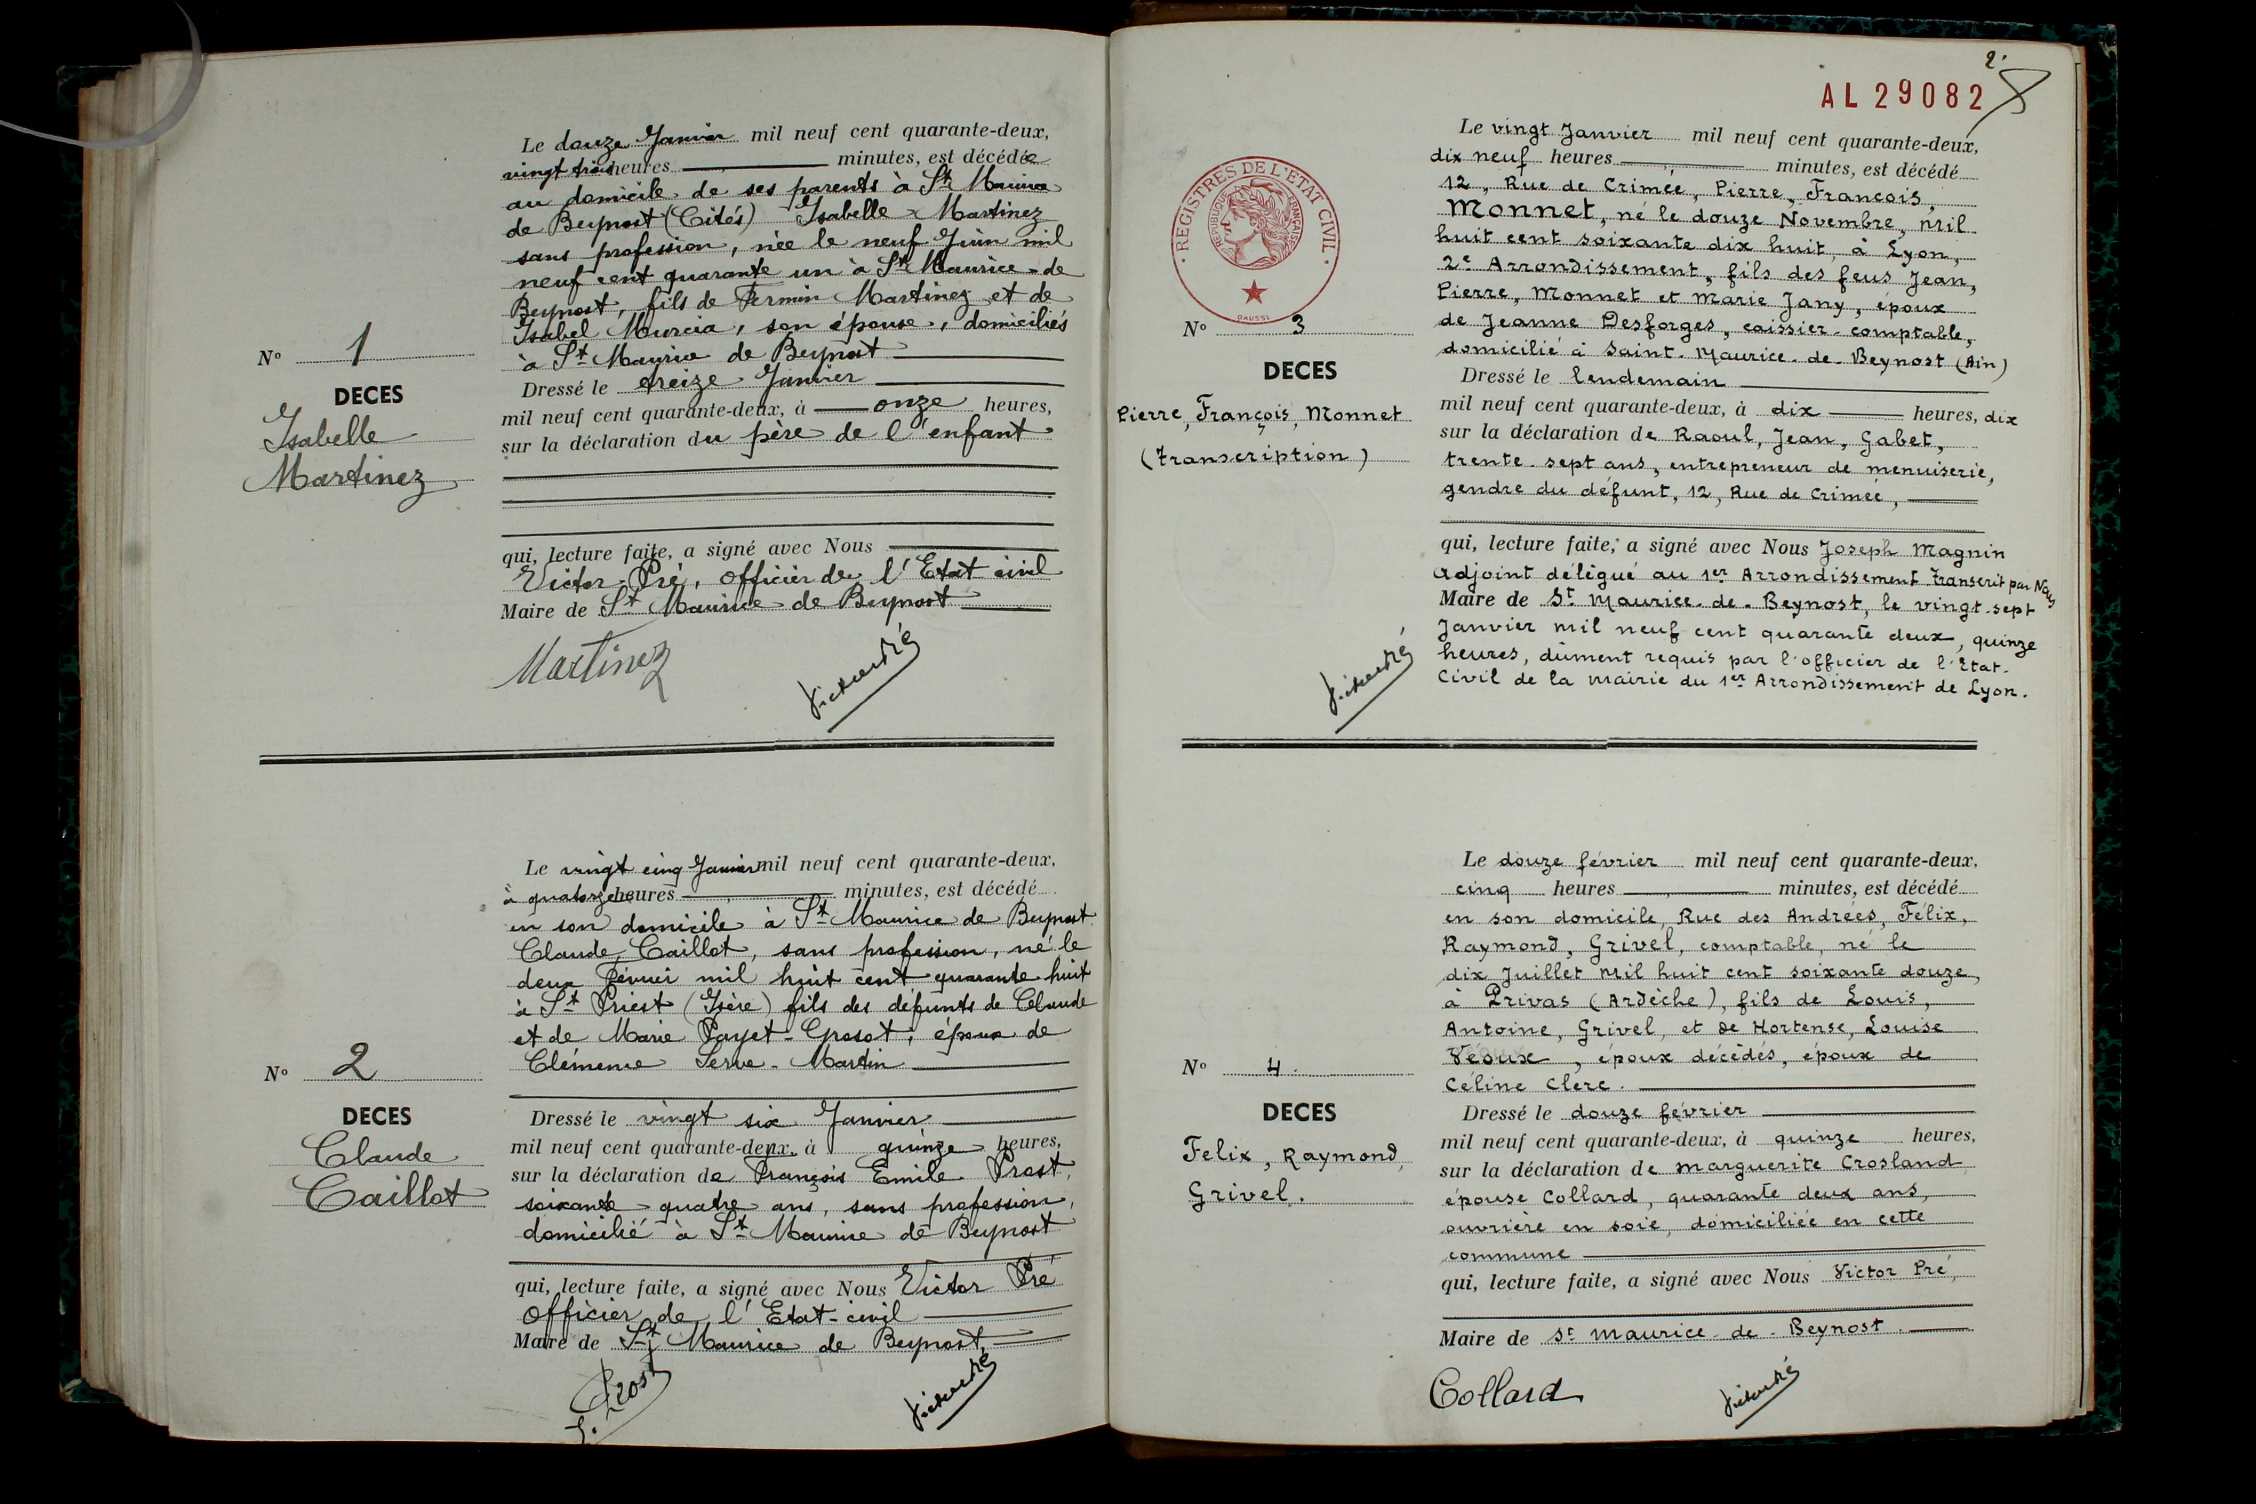 N° 1
DECES
Isabelle
Martinez
Le douze Janvier mil neuf cent quarante-deux,
vingt trois heures minutes, est décédée
au domicile de ses parents à St Maurice
de Beynost (Cités) Isabelle Martinez
sans profession, née le neuf Juin mil
neuf cent quarante un à St Maurice-de
Beynost, fils de Fermin Martinez et de
Isabel Murcia, son épouse, domiciliés
à St Maurice de Beynost
Dressé le treize Janvier
mil neuf cent quarante-deux, à onze heures,
sur la déclaration du père de l'enfant
qui, lecture faite, a signé avec Nous
Victor Pré, officier de l'Etat civil
Maire de St Maurice de Beynost
Martinez
Victor Pré
N° 2
DECES
Claude
Caillot
Le vingt cinq Janvier mil neuf cent quarante-deux,
à quatorze heures minutes, est décédé
en son domicile à St Maurice de Beynost
Claude, Caillot, sans profession, né le
deux Février mil huit cent quarante-huit
à St Priest (Isère) fils des défunts de Claude
et de Marie Payet-Grosot, époux de
Clémence Serve-Martin
Dressé le vingt six Janvier
mil neuf cent quarante-deux, à quinze heures,
sur la déclaration de François Emile Prost,
soixante quatre ans, sans profession,
domicilié à St Maurice de Beynost
qui, lecture faite, a signé avec Nous Victor Pré
officier de l'Etat-civil
Maire de St Maurice de Beynost,
Prost
Victor Pré
2.
AL 29082
REGISTRES DE L'ETAT CIVIL
REPUBLIQUE FRANÇAISE
DAUSSY
N° 3
DECES
Pierre, François, Monnet
(Transcription)
Le vingt Janvier mil neuf cent quarante-deux,
dix neuf heures minutes, est décédé
12, Rue de Crimée, Pierre, François,
Monnet, né le douze Novembre, mil
huit cent soixante dix huit, à Lyon,
2e Arrondissement, fils des feus Jean,
Pierre, Monnet et Marie Jany, époux
de Jeanne Desforges, caissier-comptable,
domicilié à Saint-Maurice-de-Beynost (Ain)
Dressé le lendemain
mil neuf cent quarante-deux, à dix heures, dix
sur la déclaration de Raoul, Jean, Gabet,
trente-sept ans, entrepreneur de menuiserie,
gendre du défunt, 12, Rue de Crimée,
qui, lecture faite, a signé avec Nous Joseph Magnin
Adjoint délégué au 1er Arrondissement Transcrit par Nous
Maire de St Maurice-de-Beynost, le vingt-sept
Janvier mil neuf cent quarante deux, quinze
heures, dûment requis par l'officier de l'Etat-
Civil de la Mairie du 1er Arrondissement de Lyon.
Victor Pré
N° 4.
DECES
Felix, Raymond,
Grivel.
Le douze février mil neuf cent quarante-deux,
cinq heures minutes, est décédé
en son domicile, Rue des Andrées, Félix,
Raymond, Grivel, comptable, né le
dix Juillet Mil huit cent soixante douze,
à Privas (Ardèche), fils de Louis,
Antoine, Grivel, et de Hortense, Louise
Véoux, époux décédés, époux de
Céline Clerc.
Dressé le douze février
mil neuf cent quarante-deux, à quinze heures,
sur la déclaration de Marguerite Crosland
épouse Collard, quarante deux ans,
ouvrière en soie, domiciliée en cette
commune
qui, lecture faite, a signé avec Nous Victor Pré,
Maire de St Maurice-de-Beynost.
Collard
Victor Pré